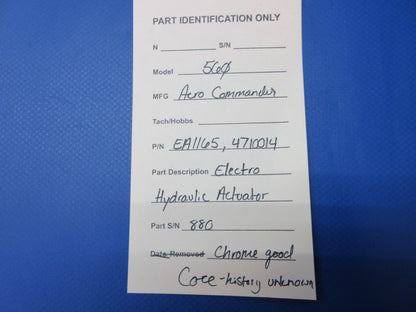 PART IDENTIFICATION ONLY
N ____________ S/N ____________
Model 560
MFG Aero Commander
Tach/Hobbs
P/N EA1165, 4710014
Part Description Electro
Hydraulic Actuator
Part S/N 880
Date Removed Chrome good
Core-history unknown